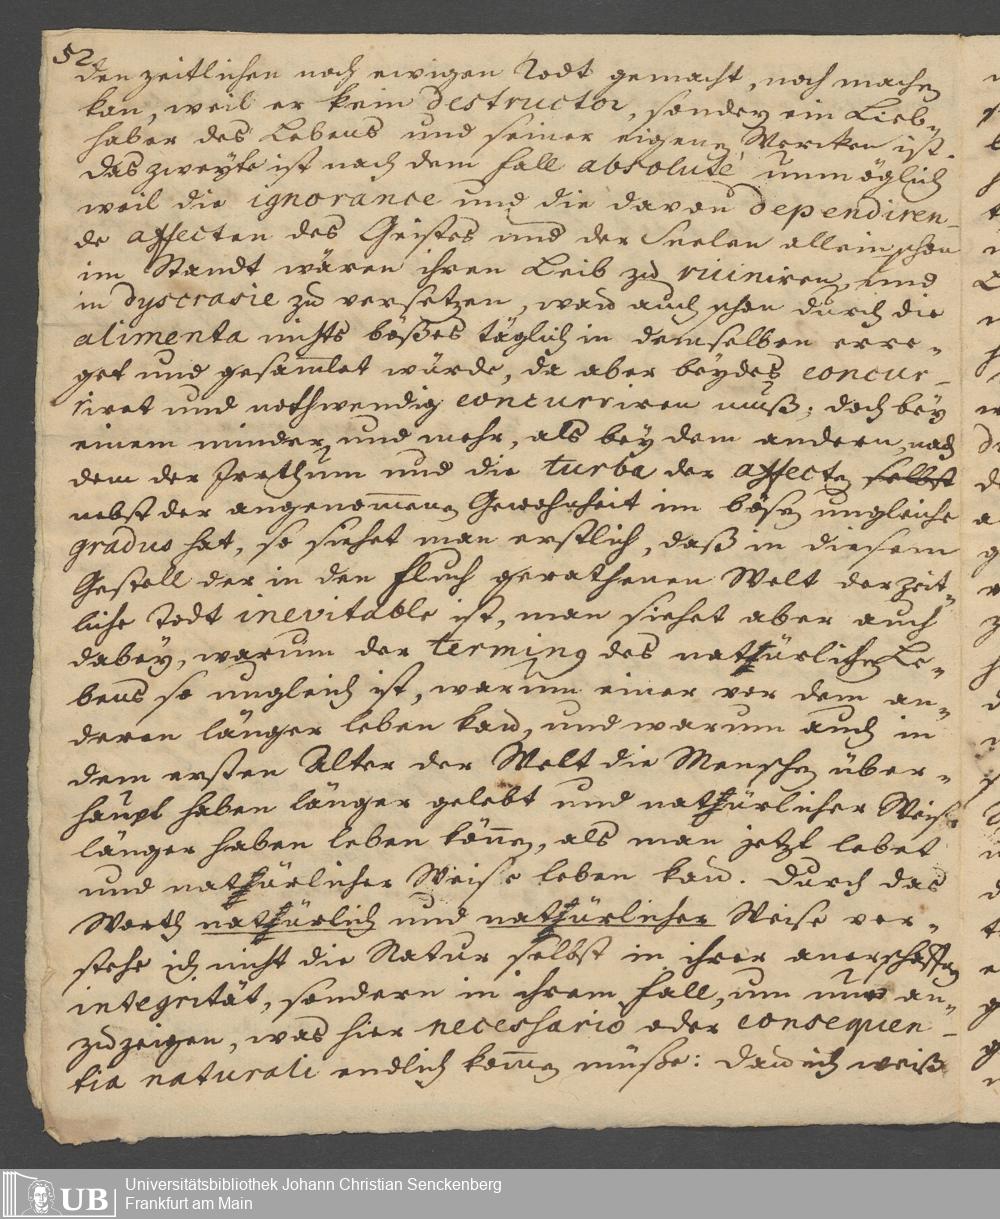 52
den zeitlichen noch ewigen Todt gemacht, noch machen
kan, weil er kein destructor, sondern ein Lieb-
haber des Lebens und seiner eigenen Wercken ist.
das zweyte ist nach dem fall absolutè unmöglich
weil die ignorance und die davon dependiren-
de affecten des Geistes und der Seelen allein schon
im Standt wären ihren Leib zu ruiniren, und
in dyscrasie zu versetzen, wan auch schon durch die
alimenta nichts böses täglich in demselben erre-
get und gesamlet würde, da aber beydes concur-
riret und nothwendig concurriren muß; doch bey
einem minder, und mehr, als bey dem andern, nach
dem der Jrrthum und die turba der affecten selbst
nebst der angenommenen Gewohnheit im bösen ungleiche
gradus hat, so siehet man erstlich, daß in diesem
Gestell der in den fluch gerathenen Welt der zeit-
liche Todt inevitable ist, man siehet aber auch
dabey, warum der terminus des natürlichen Le-
bens so ungleich ist, warum einer vor dem an-
deren länger leben kan, und warum auch in
dem ersten Alter der Welt die Menschen über-
haupt haben länger gelebt und natürlicher Weise
länger haben leben können, als man jetzt lebet
und natürlicher Weise leben kan. Durch das
Worth natürlich und natürlicher Weise ver-
stehe ich nicht die Natur selbst in ihrer anerschaffnen
integrität, sondern in ihrem fall, um nur an-
zuzeigen, was hier necessario oder consequen-
tia naturali endlich kommen müße: dan ich weiß
UB
Universitätsbibliothek Johann Christian Senckenberg
Frankfurt am Main